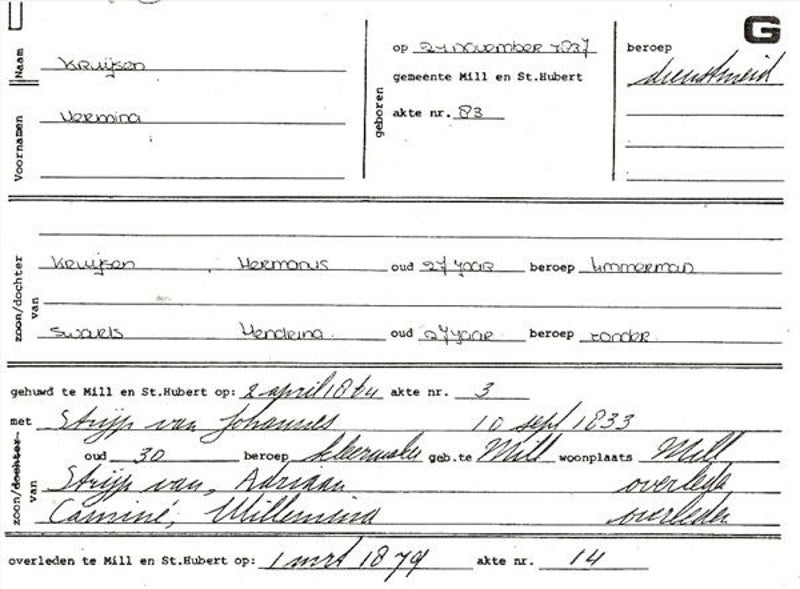 G
Naam Kruijsen
op 24 november 1837
beroep dienstmeid
gemeente Mill en St.Hubert
geboren
Voornamen Hermina
akte nr. 83
zoon/dochter van
Kruijsen Hermanus oud 27 jaar beroep timmerman
Swarts Hendrina oud 27 jaar beroep zonder
gehuwd te Mill en St.Hubert op: 2 april 1864 akte nr. 3
met Strijp van Johannes 10 sept 1833
oud 30 beroep kleermaker geb.te Mill woonplaats Mill
zoon/dochter van
Strijp van, Adriaan overleden
Camine, Willemina overleden
overleden te Mill en St.Hubert op: 1 mrt 1879 akte nr. 14